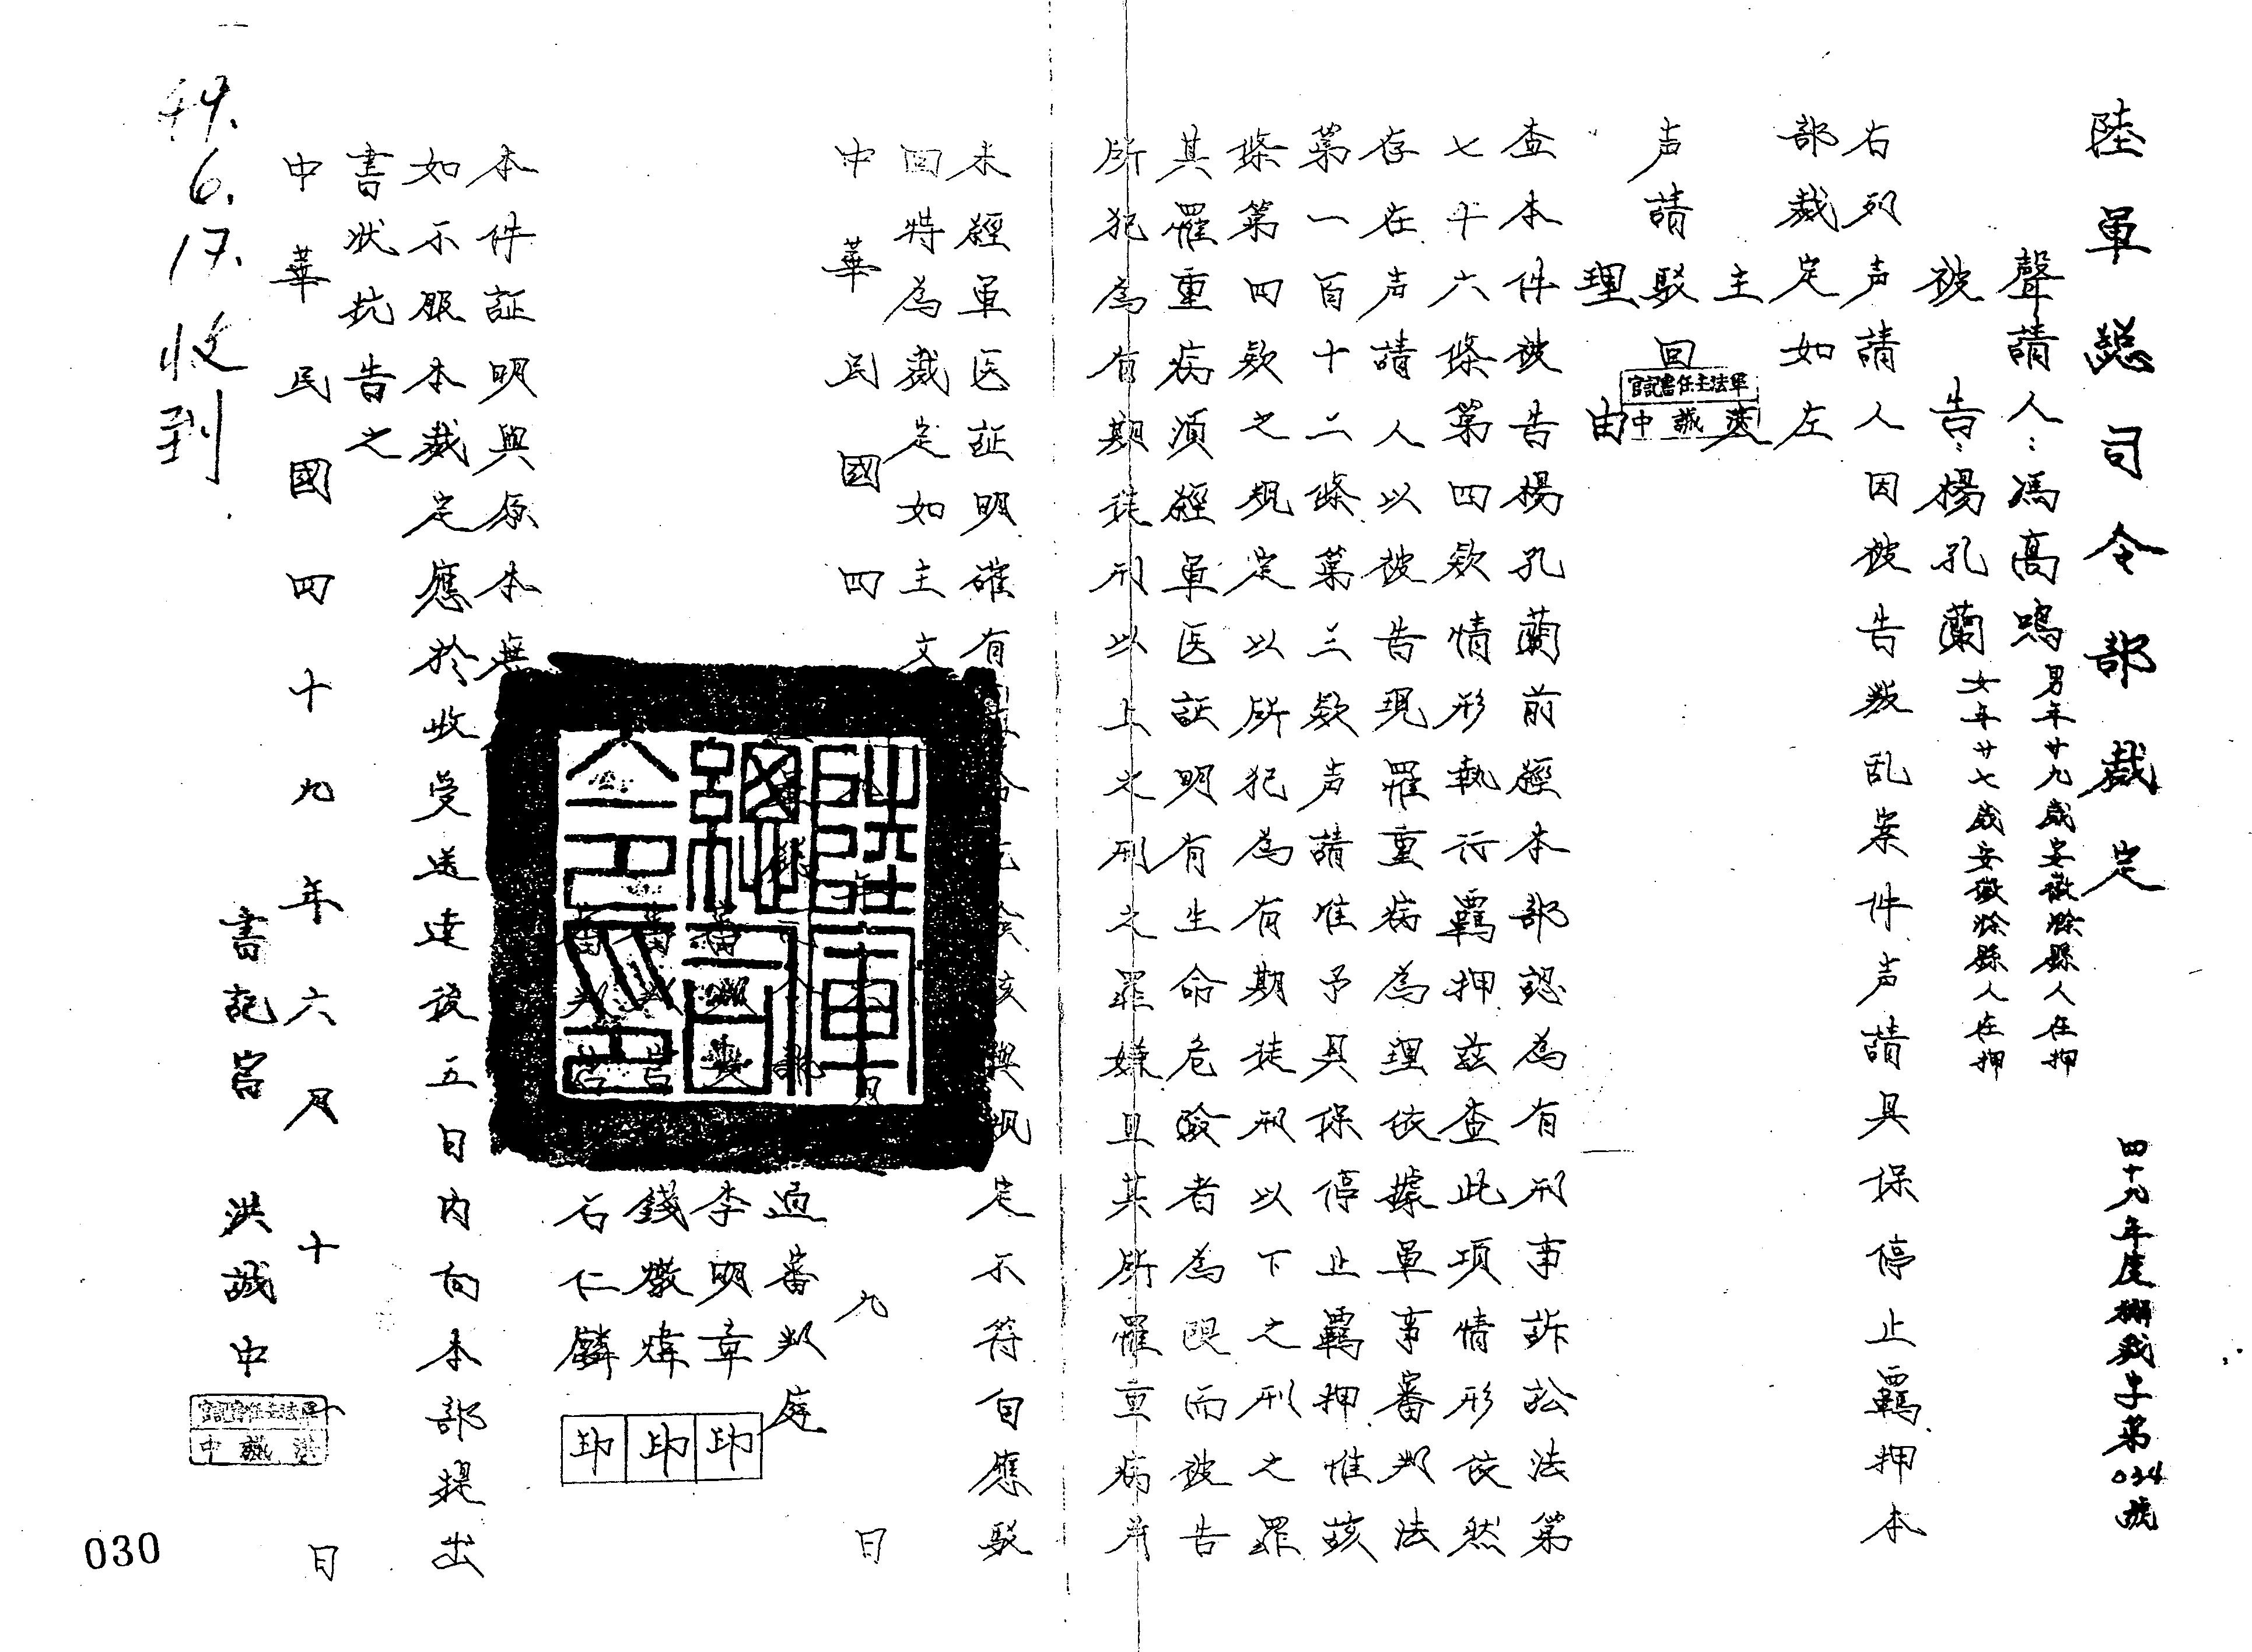 陸軍總司令部裁定
四十九年度 裁字第034號
聲請人：馮高鳴 男年廿九歲安徽滁縣人在押
被告：楊孔蘭 女年廿七歲安徽滁縣人在押
右列声請人因被告叛乱案件声請具保停止羈押本
部裁定如左
主文
声請駁回
軍法主任書記官
洪誠中
理由
查本件被告楊孔蘭前經本部認為有刑事訴訟法第
七十六條第四欵情形執行羈押茲查此項情形依然
存在声請人以被告現罹重病為理依據軍事審判法
第一百十二條第三欵声請准予具保停止羈押惟該
條第四欵之規定以所犯為有期徒刑以下之刑之罪
其罹重病須經軍医証明有生命危險者為限而被告
所犯為有期徒刑以上之刑之罪嫌且其所罹重病亦
未經軍医証明確有 該與規定不符自應駁
回特為裁定如主文
中華民國四 年 月九日
審判庭
李明章 印
錢 煒 印
石仁麟 印
陸軍總司令部印
本件証明與原本無
如不服本裁定應於收受送達後五日内向本部提出
書狀抗告之
中華民國四十九年六月十 日
書記官 洪誠中
軍法主任書記官
洪誠中
49.6.17.收到.
030